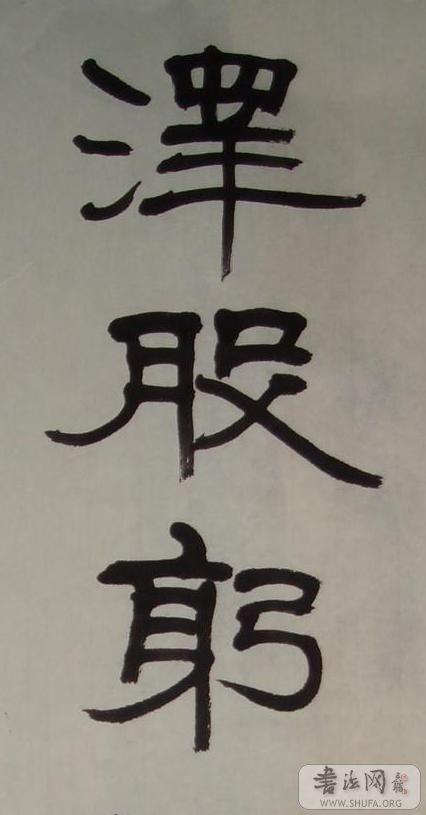 澤
股
躬
書法网
WWW.SHUFA.ORG